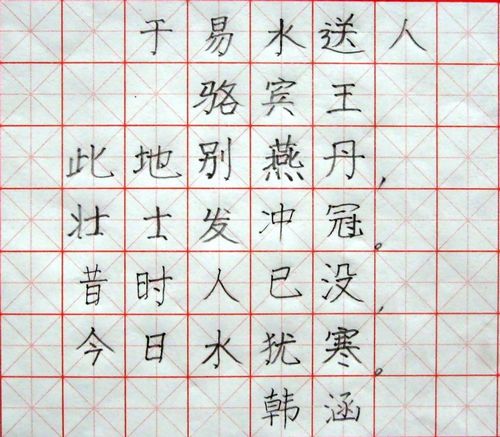 于易水送人
骆宾王
此地别燕丹，
壮士发冲冠。
昔时人已没，
今日水犹寒。
韩涵